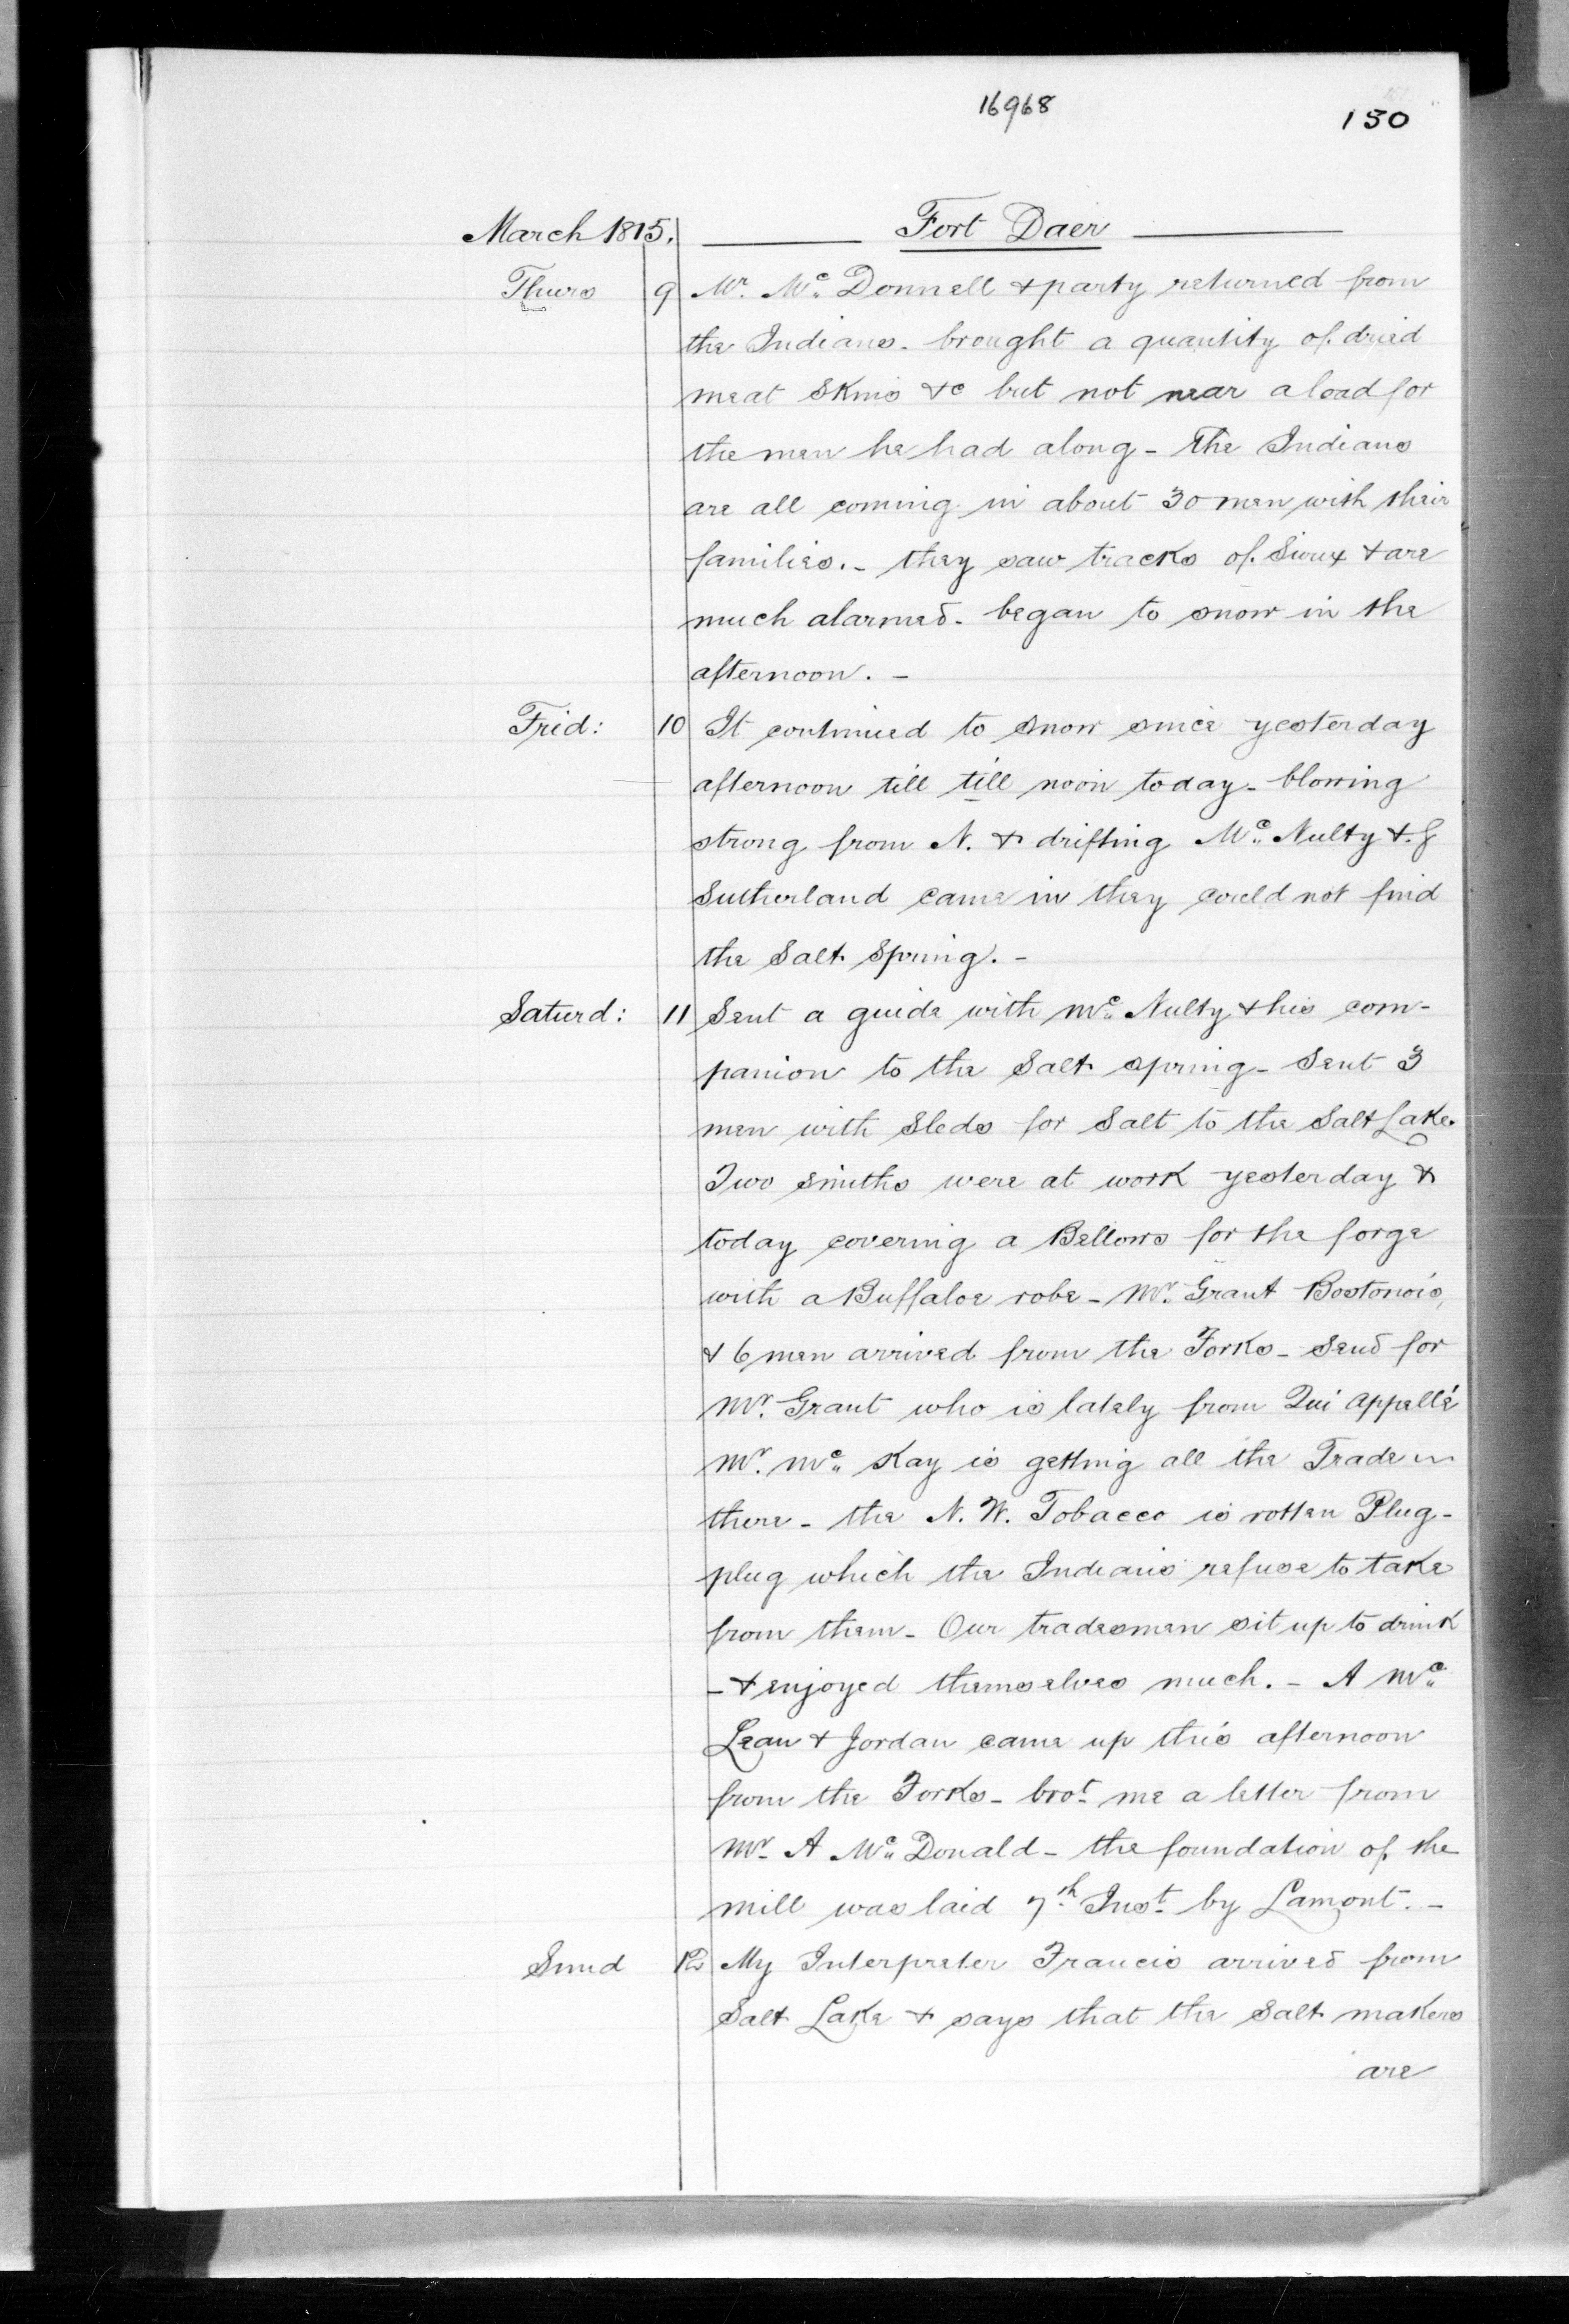 16968
130
March 1815. Fort Daer
Thurs 9 Mr. Mc. Donnell & party returned from
the Indians. brought a quantity of dried
meat skins &c but not near a load for
the men he had along - The Indians
are all coming in about 30 men with their
families. - they saw tracks of Sioux & are
much alarmed. began to snow in the
afternoon. -
Frid: 10 It continued to snow since yesterday
afternoon till till noon today - blowing
strong from N. & drifting Mc. Nulty & J
Sutherland came in they could not find
the Salt Spring. -
Saturd: 11 Sent a guide with Mc. Nulty & his com-
panion to the Salt spring - Sent 3
men with Sleds for Salt to the Salt Lake.
Two smiths were at work yesterday &
today covering a Bellows for the forge
with a Buffaloe robe - Mr. Grant Bostonois,
& 6 men arrived from the Forks - Send for
Mr. Grant who is lately from Qui appellé
Mr. Mc. Kay is getting all the Trade
there - the N. W. Tobacco is rotten Plug -
plug which the Indians refuse to take
from them - Our tradesmen sit up to drink
- & enjoyed themselves much. - A Mc.
Lean & Jordan came up this afternoon
from the Forks - brot. me a letter from
Mr. A Mc. Donald - the foundation of the
mill was laid 7th. Inst. by Lamont. -
Sund 12 My Interpreter Francis arrived from
Salt Lake & says that the Salt makers
are